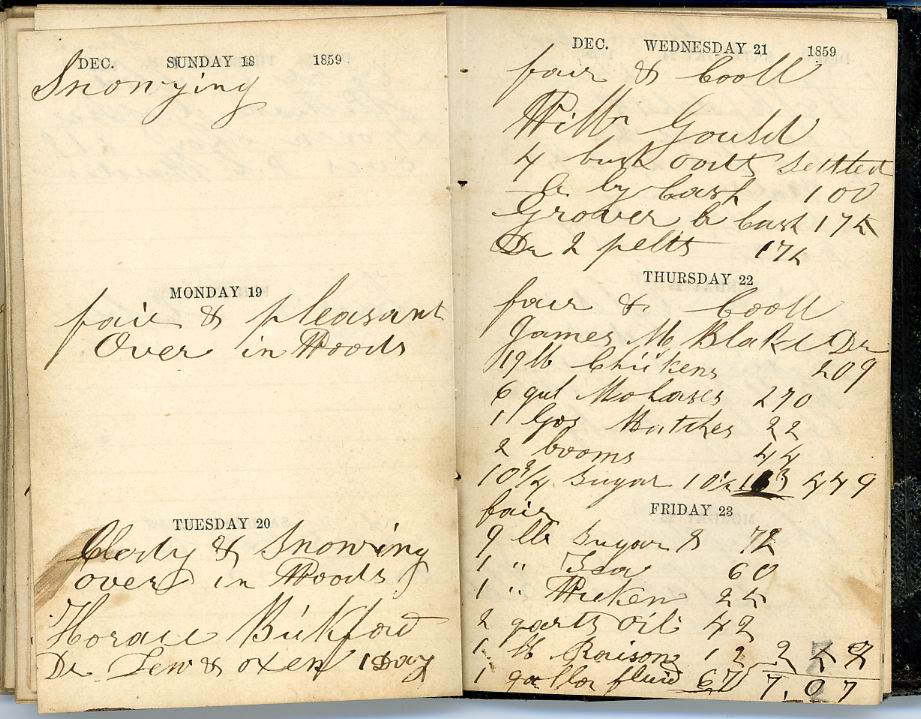 DEC. SUNDAY 18 1859
Snowying
MONDAY 19
fair & pleasant
Over in Woods
TUESDAY 20
Clody & Snowing
over in Woods
Horace Bickford
Dr Lew & oxen 1 Day
DEC. WEDNESDAY 21 1859
fair & Cooll
Willn Gould
4 bush oats Settled
by Cash 100
Grover by Cash 175
Dr 2 pelts 175
THURSDAY 22
fair & Cooll
James M Blake Dr
19 lb Chickens 209
6 gal Molases 270
1 Gos Matches 22
2 booms 44
10 3/4 Sugar 10½ 113 449
FRIDAY 23
fair
9 lb Sugar 8 72
1 " Tea 60
1 " 25
2 qarts Oil 42
1 lb Raisons 12 2
1 gallon fluid 67 7.07